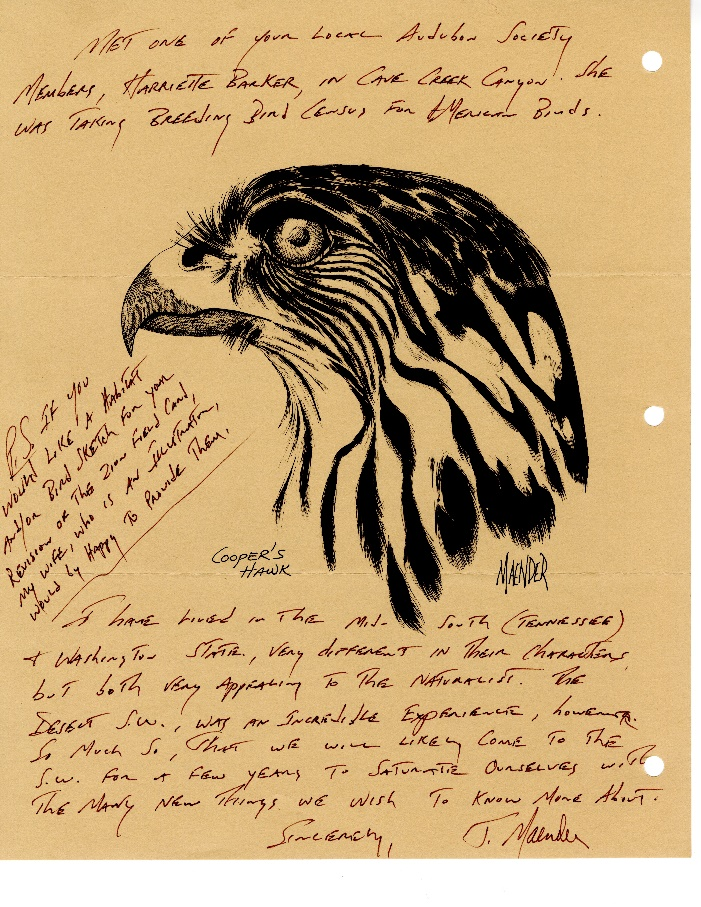 Met one of your local Audubon Society
Members, Harriette Barker, in Cave Creek Canyon. She
was taking Breeding Bird Census for American Birds.
P.S. If you
would like a Habitat
and/or Bird sketch for your
Revision of the Zion Field Card,
my wife, who is an illustrator,
would by Happy to Provide Them.
Cooper's
Hawk
Maender
I have lived in the Mid-South (Tennessee)
& Washington State, very different in their characters,
but both very appealing to the naturalist. The
Desert S.W., was an incredible experience, however.
So much so, that we will likely come to the
S.W. for a few years to saturate ourselves with
the many new things we wish to know more about.
Sincerely, J. Maender